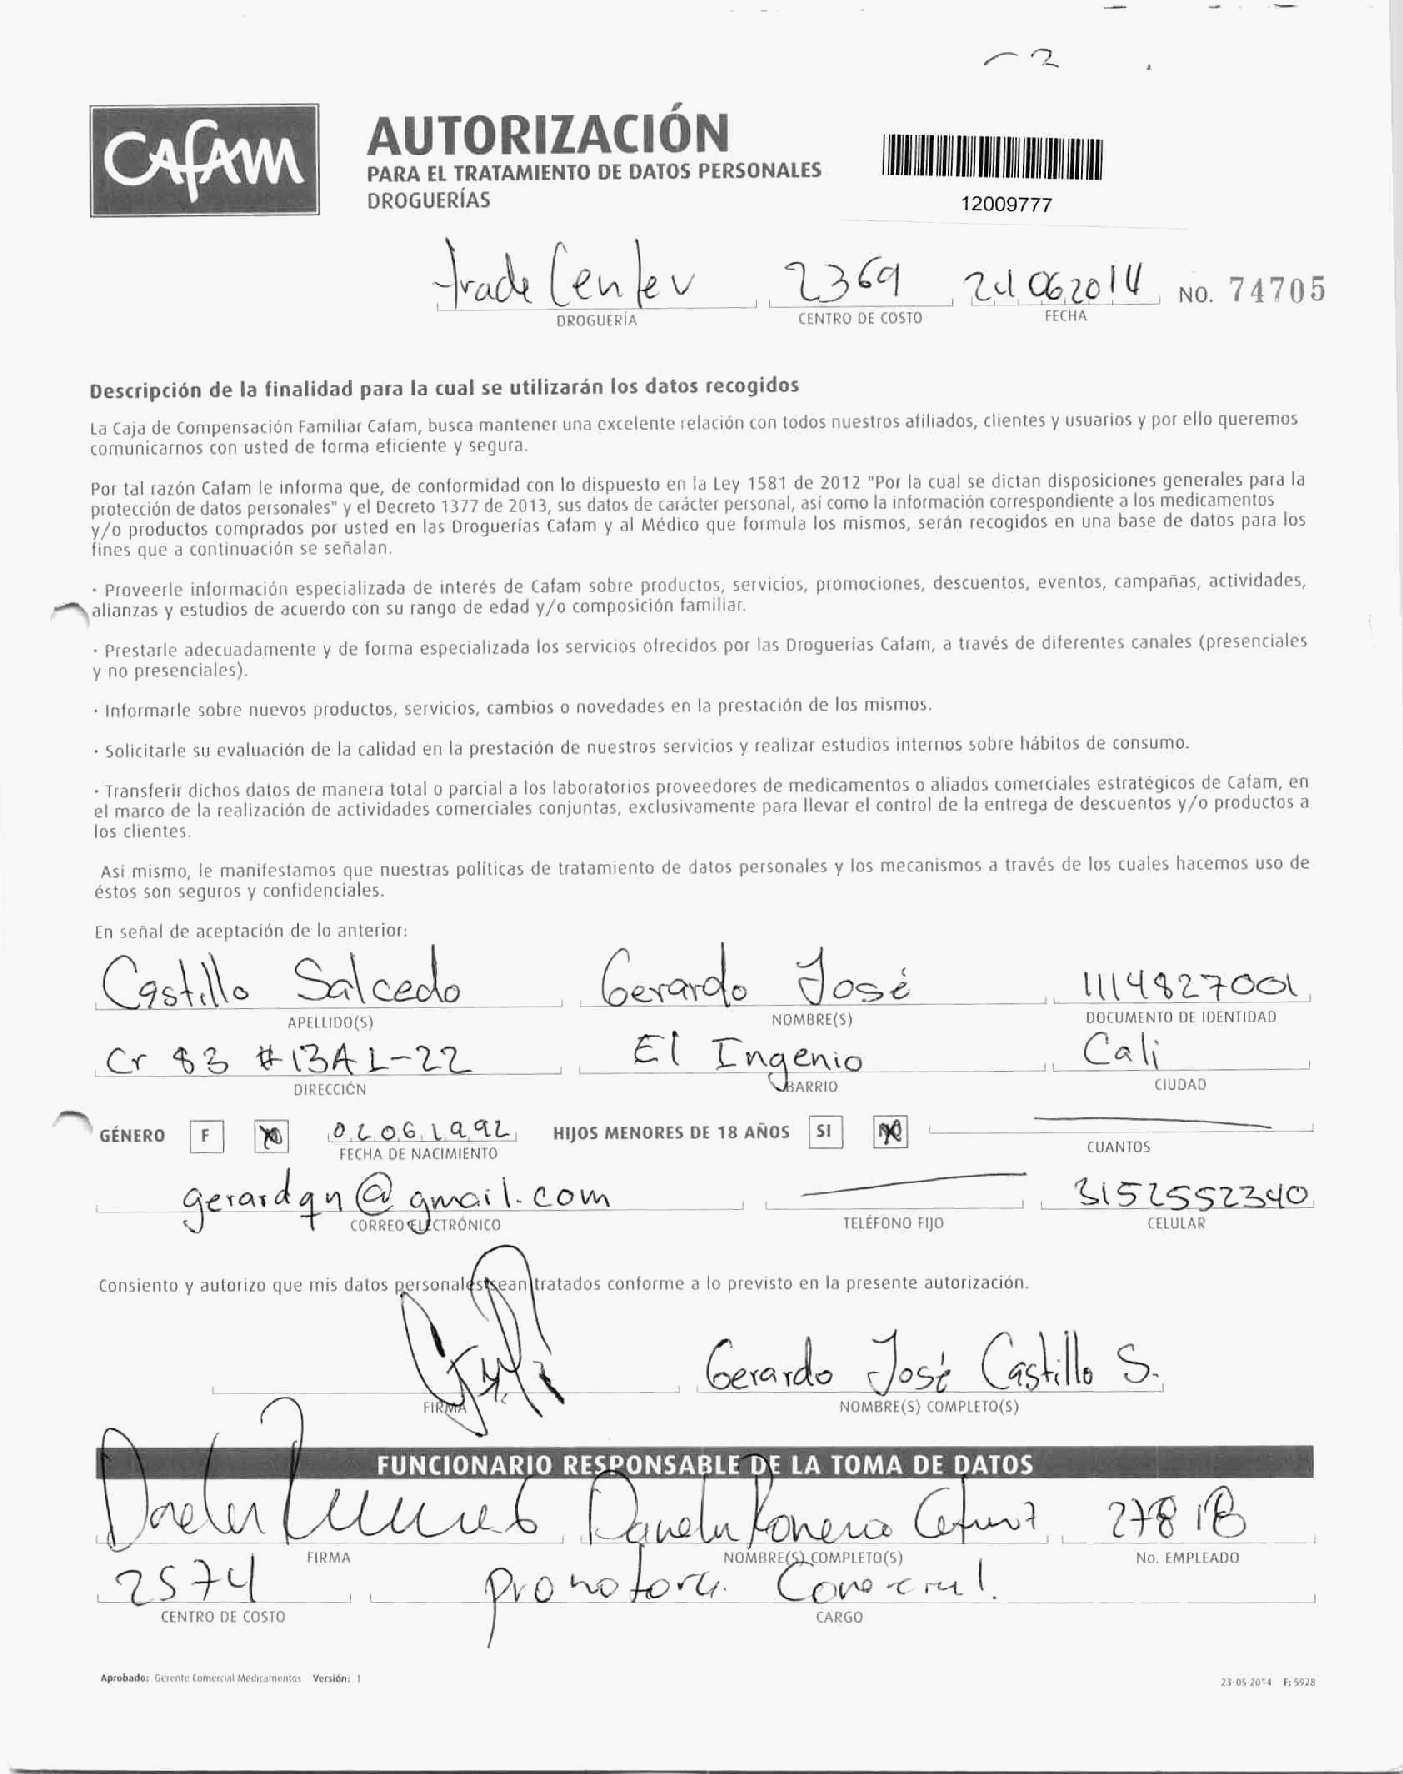 CAFAM
AUTORIZACIÓN
PARA EL TRATAMIENTO DE DATOS PERSONALES
DROGUERÍAS
12009777
Trade Center 2369 062014 NO. 74705
DROGUERÍA CENTRO DE COSTO FECHA
Descripción de la finalidad para la cual se utilizarán los datos recogidos
La Caja de Compensación Familiar Cafam, busca mantener una excelente relación con todos nuestros afiliados, clientes y usuarios y por ello queremos
comunicarnos con usted de forma eficiente y segura.
Por tal razón Cafam le informa que, de conformidad con lo dispuesto en la Ley 1581 de 2012 "Por la cual se dictan disposiciones generales para la
protección de datos personales" y el Decreto 1377 de 2013, sus datos de carácter personal, así como la información correspondiente a los medicamentos
y/o productos comprados por usted en las Droguerías Cafam y al Médico que formula los mismos, serán recogidos en una base de datos para los
fines que a continuación se señalan.
· Proveerle información especializada de interés de Cafam sobre productos, servicios, promociones, descuentos, eventos, campañas, actividades,
alianzas y estudios de acuerdo con su rango de edad y/o composición familiar.
· Prestarle adecuadamente y de forma especializada los servicios ofrecidos por las Droguerías Cafam, a través de diferentes canales (presenciales
y no presenciales).
· Informarle sobre nuevos productos, servicios, cambios o novedades en la prestación de los mismos.
· Solicitarle su evaluación de la calidad en la prestación de nuestros servicios y realizar estudios internos sobre hábitos de consumo.
· Transferir dichos datos de manera total o parcial a los laboratorios proveedores de medicamentos o aliados comerciales estratégicos de Cafam, en
el marco de la realización de actividades comerciales conjuntas, exclusivamente para llevar el control de la entrega de descuentos y/o productos a
los clientes.
Así mismo, le manifestamos que nuestras políticas de tratamiento de datos personales y los mecanismos a través de los cuales hacemos uso de
éstos son seguros y confidenciales.
En señal de aceptación de lo anterior:
Castillo Salcedo Gerardo José 1114827001
APELLIDO(S) NOMBRE(S) DOCUMENTO DE IDENTIDAD
Cr 83 #13A1-22 El Ingenio Cali
DIRECCIÓN BARRIO CIUDAD
GÉNERO F 02061992 HIJOS MENORES DE 18 AÑOS SI
FECHA DE NACIMIENTO CUANTOS
gerardqn@gmail.com 3152552340
CORREO ELECTRÓNICO TELÉFONO FIJO CELULAR
Consiento y autorizo que mis datos personales sean tratados conforme a lo previsto en la presente autorización.
Gerardo José Castillo S.
FIRMA NOMBRE(S) COMPLETO(S)
FUNCIONARIO RESPONSABLE DE LA TOMA DE DATOS
27818
FIRMA NOMBRE(S) COMPLETO(S) No. EMPLEADO
2574 promotora Comercial.
CENTRO DE COSTO CARGO
Aprobado: Gerente Comercial Medicamentos Versión: 1 23-05-2014 F: 5928